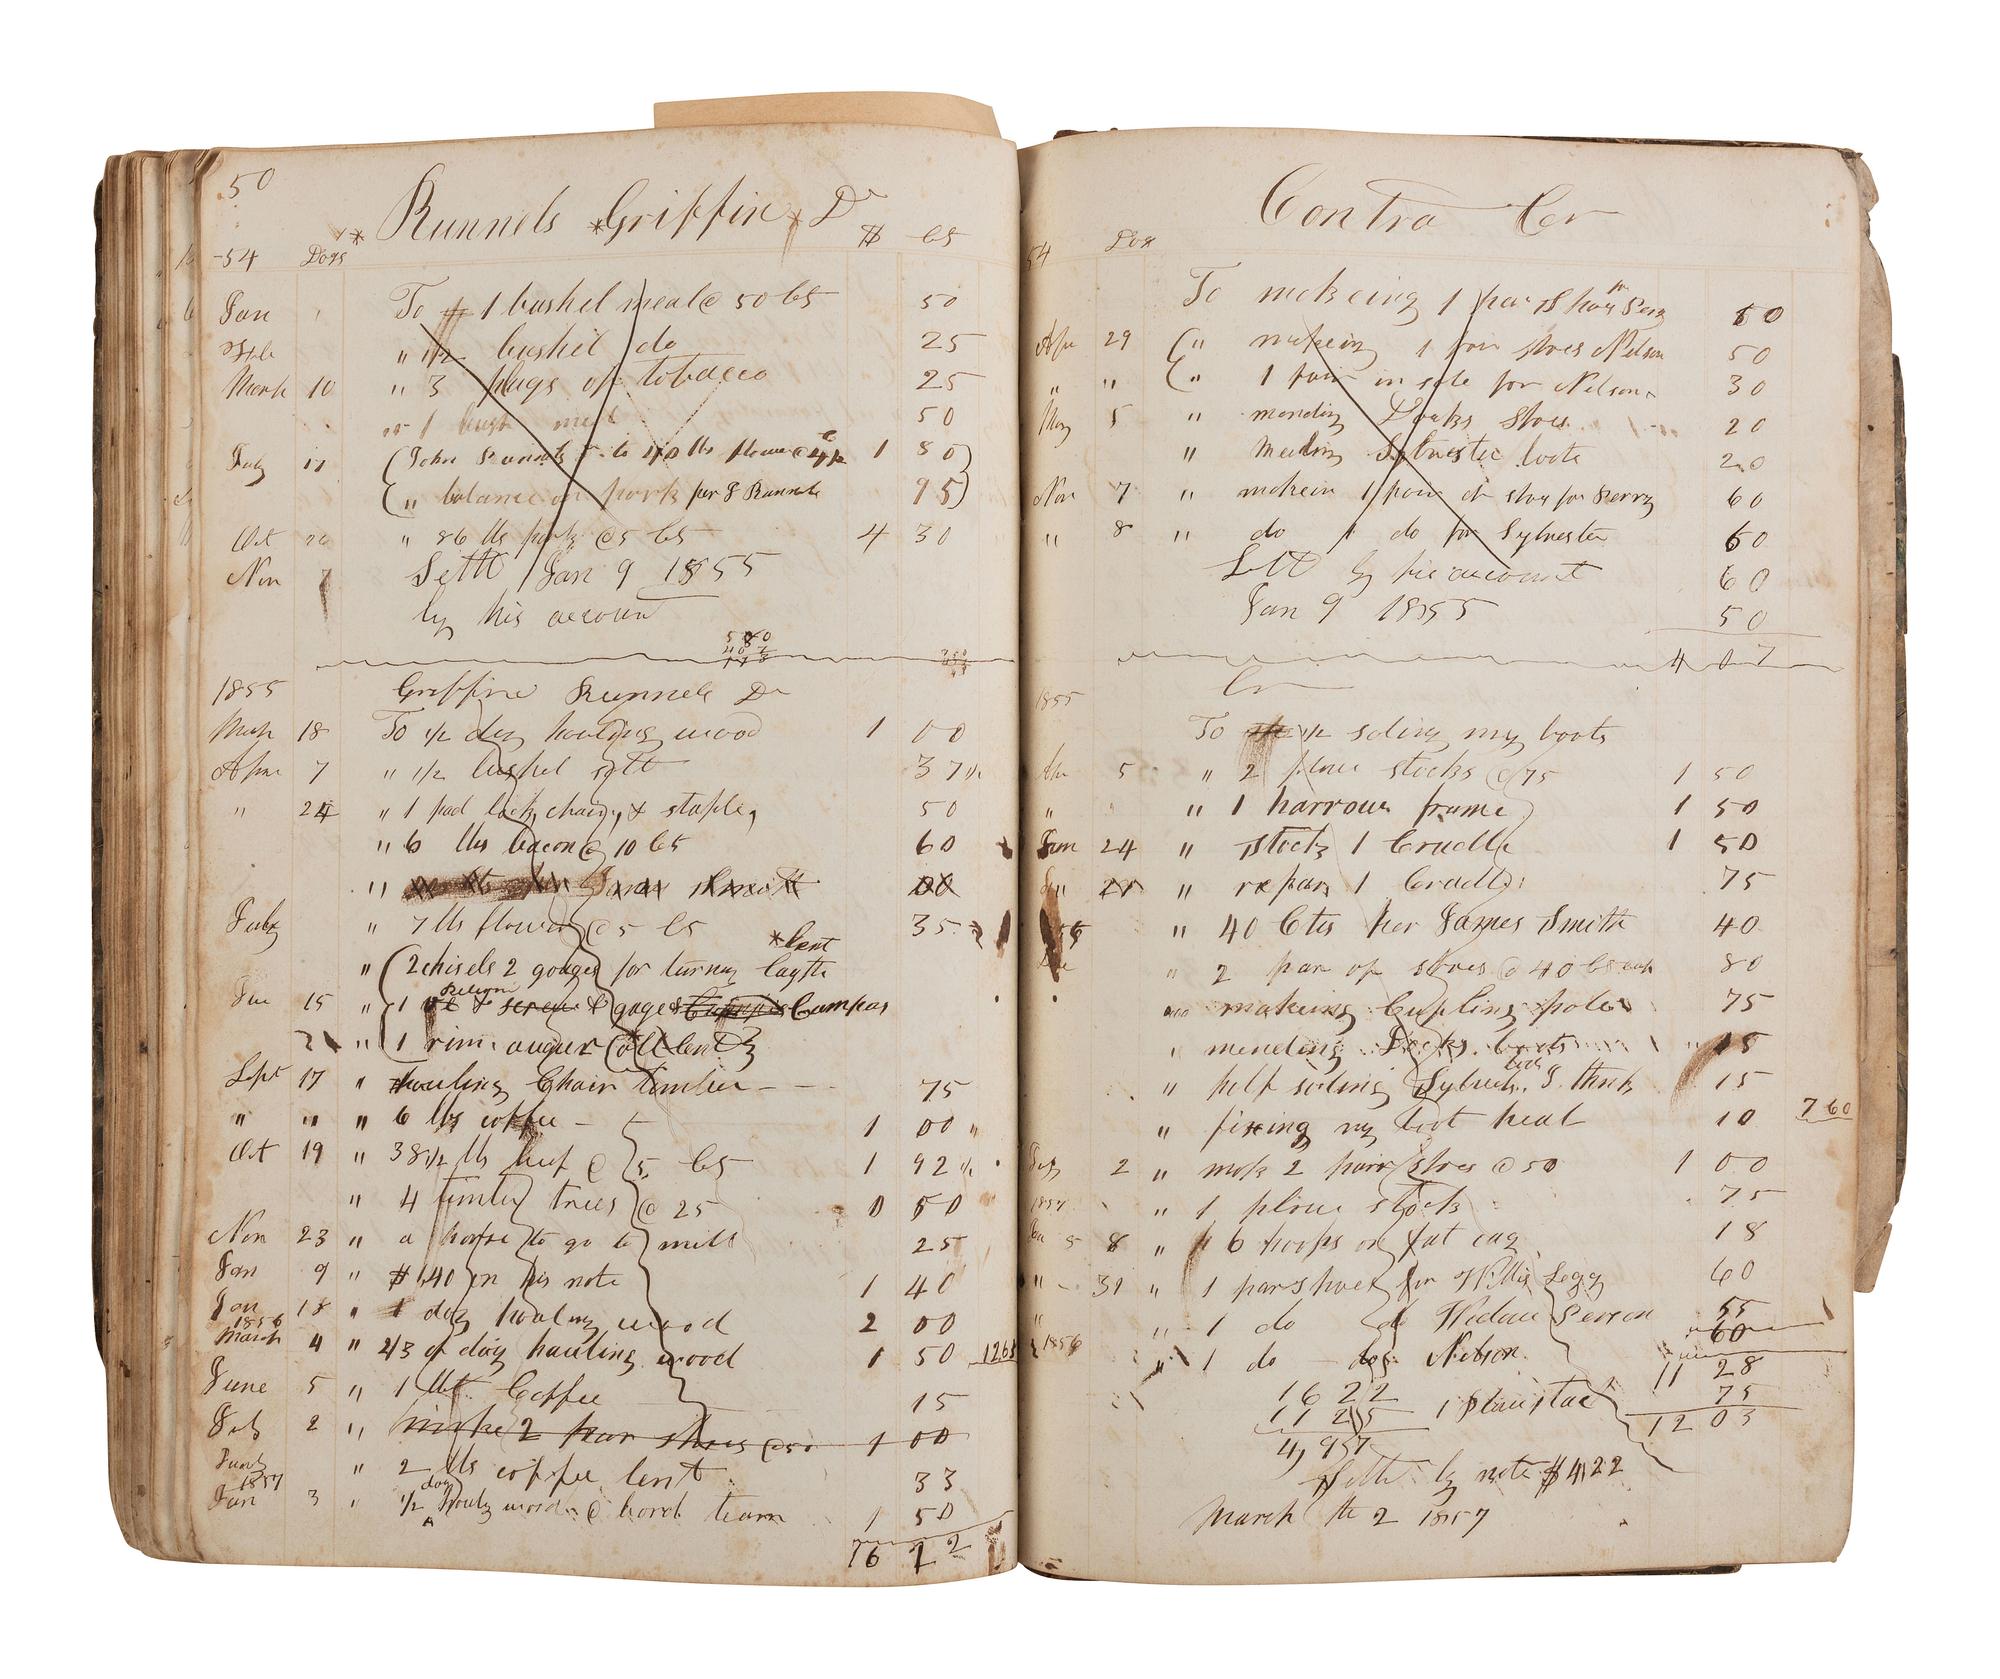 50
Runnels Griffin Dr
-54 Days $ cts
Jan To 1 bushel meal @ 50 cts 50
Feb " 1/2 bushel do 25
March 10 " 3 plugs of tobacco 25
" 1 bush meal 50
July 11 John Runnels to 40 lbs flour @ 1 80
" balance on pork per J Runnels 95
Oct 26 " 86 lbs pork @ 5 cts 4 30
Nov 7 Settl Jan 9 1855
by his account
1855 Griffin Runnels Dr
Mach 18 To 1/2 day hauling wood 1 00
Apr 7 " 1/2 bushel salt 37 1/2
" 24 " 1 pad lock, chain, & staple, 50
" 6 lbs bacon @ 10 cts 60
"
July " 7 lbs flower @ 5 cts 35
*Lent
" 2 chisels 2 gouges for turning laythe
15 " 1 & screw & gage & Cumpas
" 1 rim augur (all lent)
Sept 17 " hauling Chair timber - - 75
" " " 6 lbs coffee - 1 00 "
Oct 19 " 38 1/2 lbs beef @ 5 cts 1 92 1/2
" 4 timber trees @ 25 0 50
Nov 23 " a horse to go to mill 25
Jan 9 " $1,40 on his note 1 40
Jan 18 " 1 day hauling wood 2 00
1856
March 4 " 2/3 of day hauling wood 1 50 12.65
June 5 " 1 lb Coffee 15
Feb 2 " make 2 pair shoes @ 50 1 00
" 2 lbs coffee lent 33
1857
Jan 3 " 1/2 day hauling wood @ bord team 1 50
16 22
Contra Cr
54 Dos
To makeing 1 pair Shoes 50
Apr 29 " makeing 1 pair shoes Nelson 50
" " " 1 pair in sole for Nelson 30
May 5 " mending Docks Shoes 20
" Mending Sylvester boots 20
Nov 7 " makein 1 pair of shoes for Perry 60
" 8 " do 1 do for Sylvester 60
Settl by his account 60
Jan 9 1855 50
4 07
1855 Cr
To 1/2 soling my boots
Apr 5 " 2 plow stocks @ 75 1 50
" " 1 harrow frame 1 50
Jun 24 " stock 1 Cradle 1 50
" repar 1 Cradle 75
" 40 Cts per James Smith 40
" 2 par of shoes @ 40 cts each 80
" making Cupling poles 75
" mending Docks boots 15
" half soling Sylvest. boots 15
" fixing my boot heal 10 7 60
2 " mak 2 pair shoes @ 50 1 00
" 1 plow stock 75
8 " 6 hoops on fat cag 18
" 31 " 1 par shoes for Willis Legg 60
" " 1 do do Widow Perren 55
1856 " 1 do do Nelson 60
11 28
16 22 1 plow stock 75
11 25 12 03
4,97
Settle by note $4,22
March the 2 1857